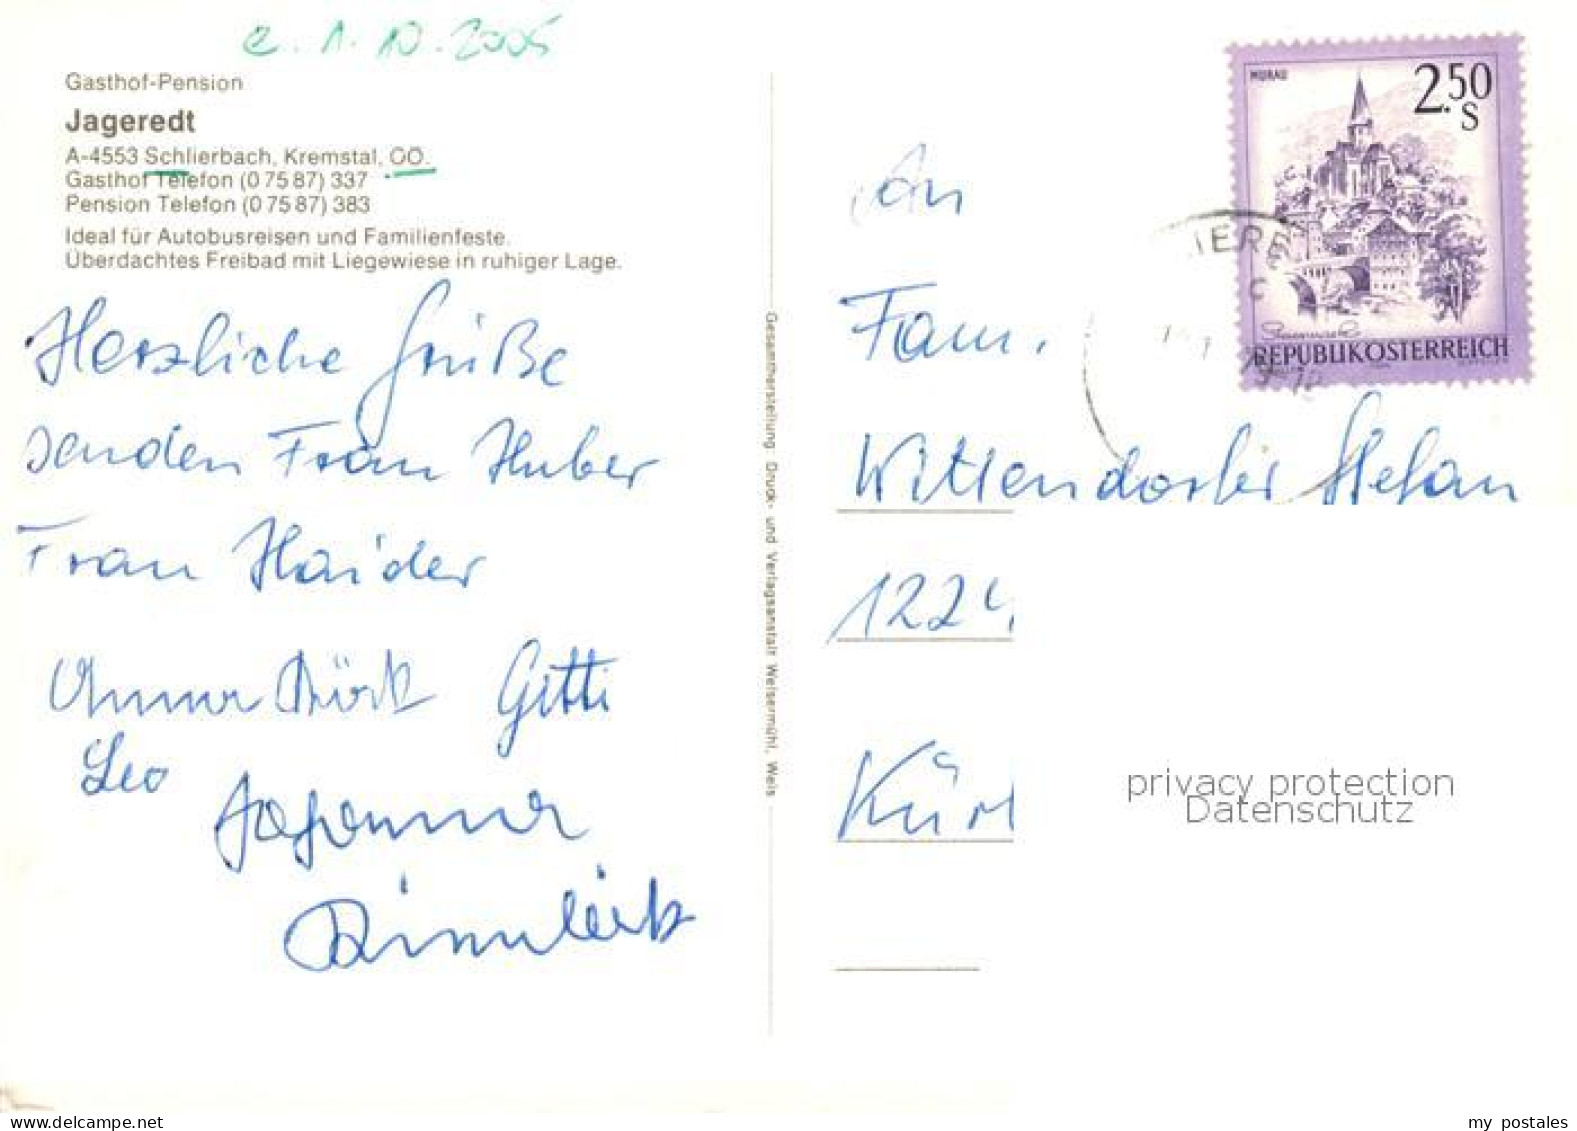 e. 1. 10. 2005
Gasthof-Pension
Jageredt
A-4553 Schlierbach, Kremstal, OÖ.
Gasthof Telefon (0 75 87) 337
Pension Telefon (0 75 87) 383
Ideal für Autobusreisen und Familienfeste.
Überdachtes Freibad mit Liegewiese in ruhiger Lage.
Herzliche Grüße
senden Frau Huber
Frau Haider
Gitti
Leo
Johanna
Gesamtherstellung Druck- und Verlagsanstalt Welsermühl, Wels
MURAU
2.50
S
REPUBLIK ÖSTERREICH
An
Fam.
Wittendorfer Stefan
1224
privacy protection
Datenschutz
my postales